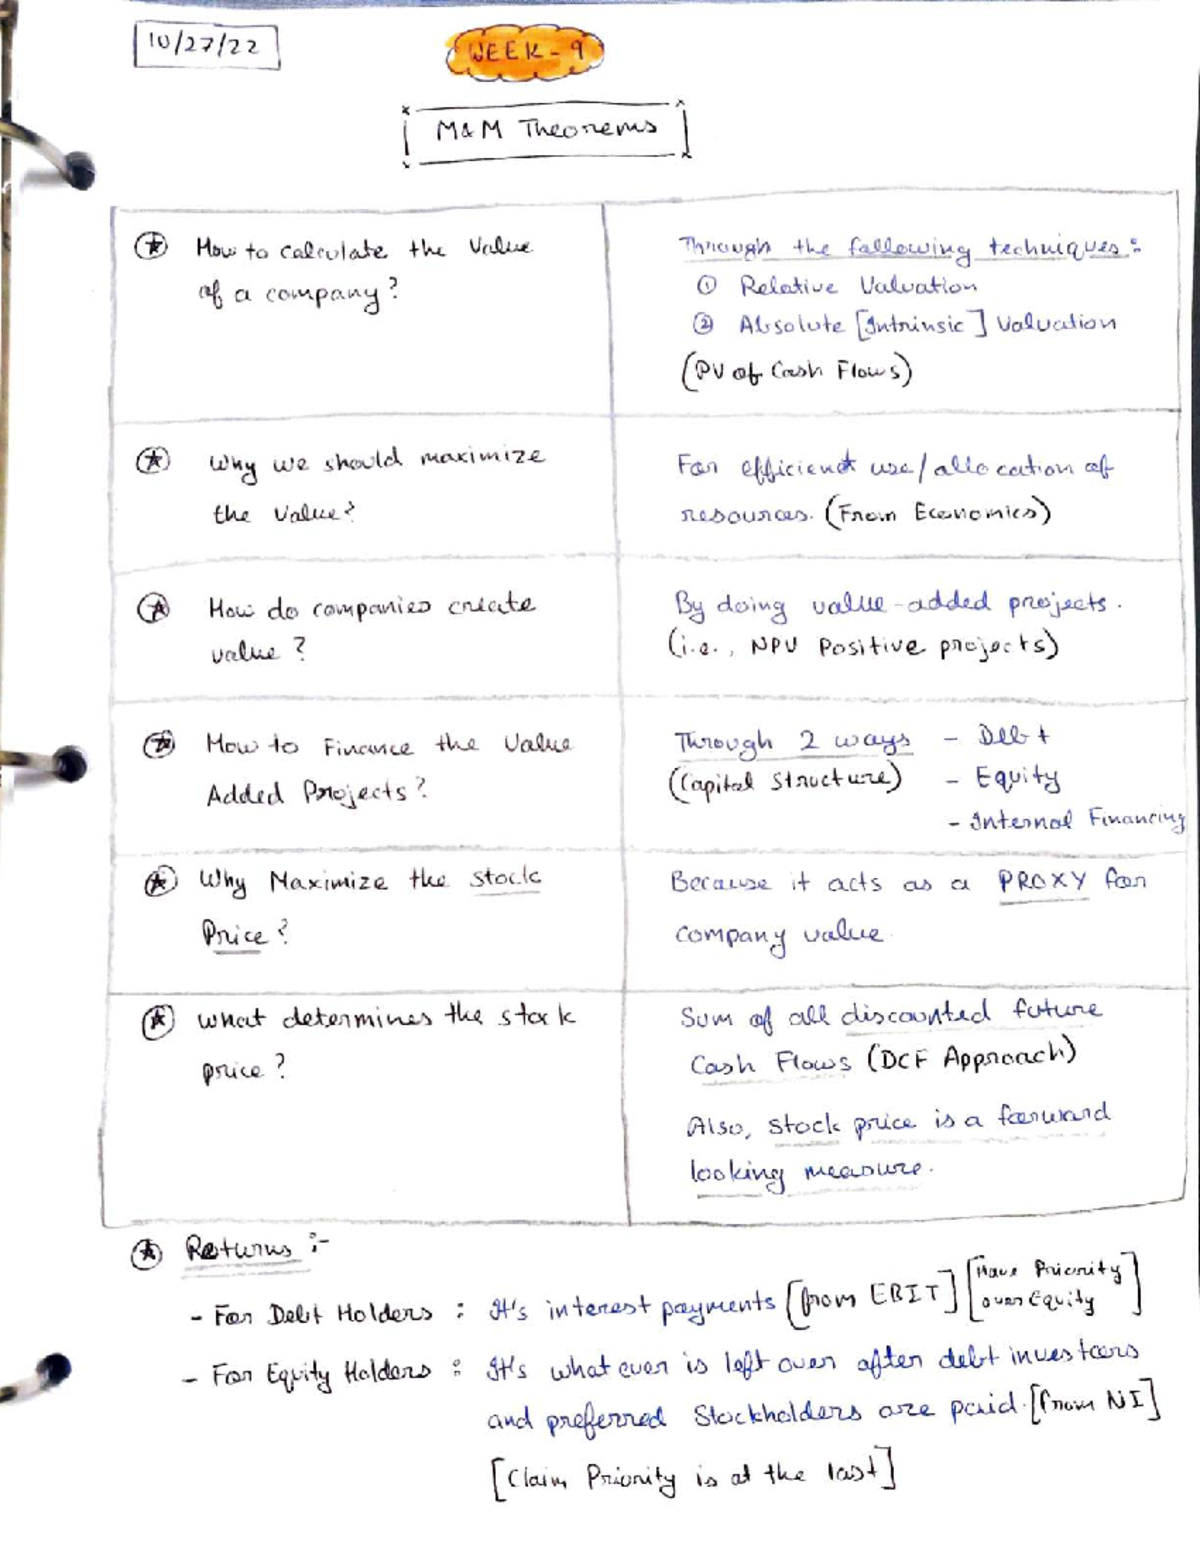 10/27/22
WEEK-9
M&M Theorems
How to calculate the Value
of a company?
Through the following techniques:
① Relative Valuation
② Absolute [Intrinsic] Valuation
(PV of Cash Flows)
Why we should maximize
the Value?
For efficient use/allocation of
resources. (From Economics)
How do companies create
value?
By doing value-added projects.
(i.e., NPV Positive projects)
How to Finance the Value
Added Projects?
Through 2 ways - Debt
(Capital Structure) - Equity
- Internal Financing
Why Maximize the Stock
Price?
Because it acts as a PROXY for
company value.
What determines the stock
price?
Sum of all discounted future
Cash Flows (DCF Approach)
Also, stock price is a forward
looking measure.
Returns :-
- For Debt Holders : It's interest payments [from EBIT] [Have Priority
over Equity]
- For Equity Holders : It's what ever is left over after debt investors
and preferred Stockholders are paid. [from NI]
[Claim Priority is at the last]